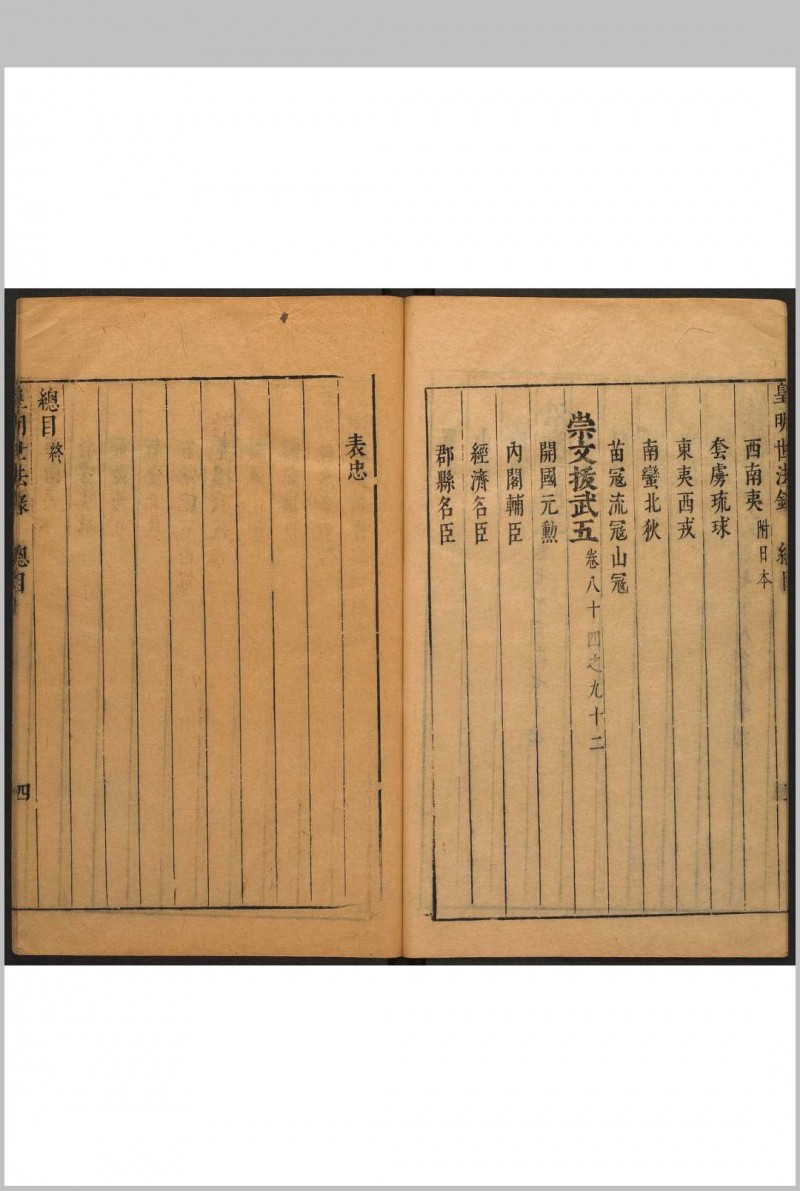 皇明世法錄 總目
西南夷 附日本
套虜琉球
東夷西戎
南蠻北狄
苗冦流冦山冦
崇文揆武五 卷八十四之九十二
開國元勲
內閣輔臣
經濟名臣
郡縣名臣
表忠
總目 終
皇明世法錄 總目 四